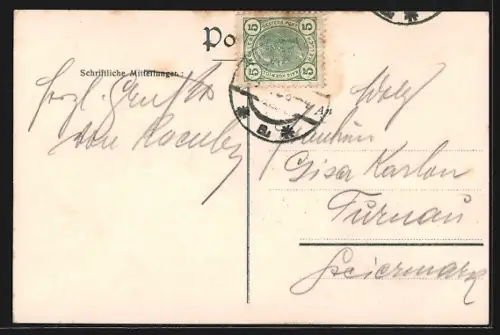 Po
5 5
5 5
Schriftliche Mitteilungen:
An
herzl. Grüße
von
a.
Wolg
Fräulein
Gisa Karlon
Turnau
Steiermark